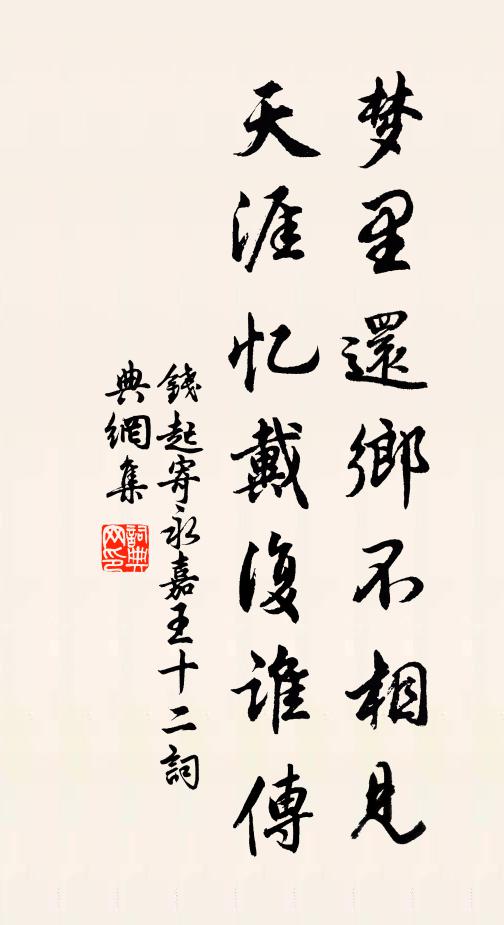 梦里還鄉不相見
天涯忆戴復誰傳
錢起寄永嘉王十二詞
典網集
詞典
网印